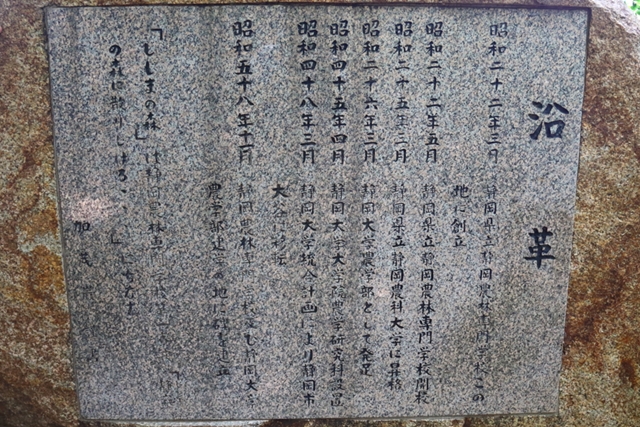 沿革
昭和二十二年三月 静岡県立静岡農林専門学校この
地に創立
昭和二十二年五月 静岡県立静岡農林専門学校開校
昭和二十五年三月 静岡県立静岡農科大学に昇格
昭和二十六年三月 静岡大学農学部として発足
昭和四十五年四月 静岡大学大学院農学研究科設置
昭和四十八年三月 静岡大学統合計画により静岡市
大谷に移転
昭和五十八年十一月 静岡農林専門 校 静岡大学
農学部 の地に碑を建立
の森 は静岡農林専門学校
の森に
加茂